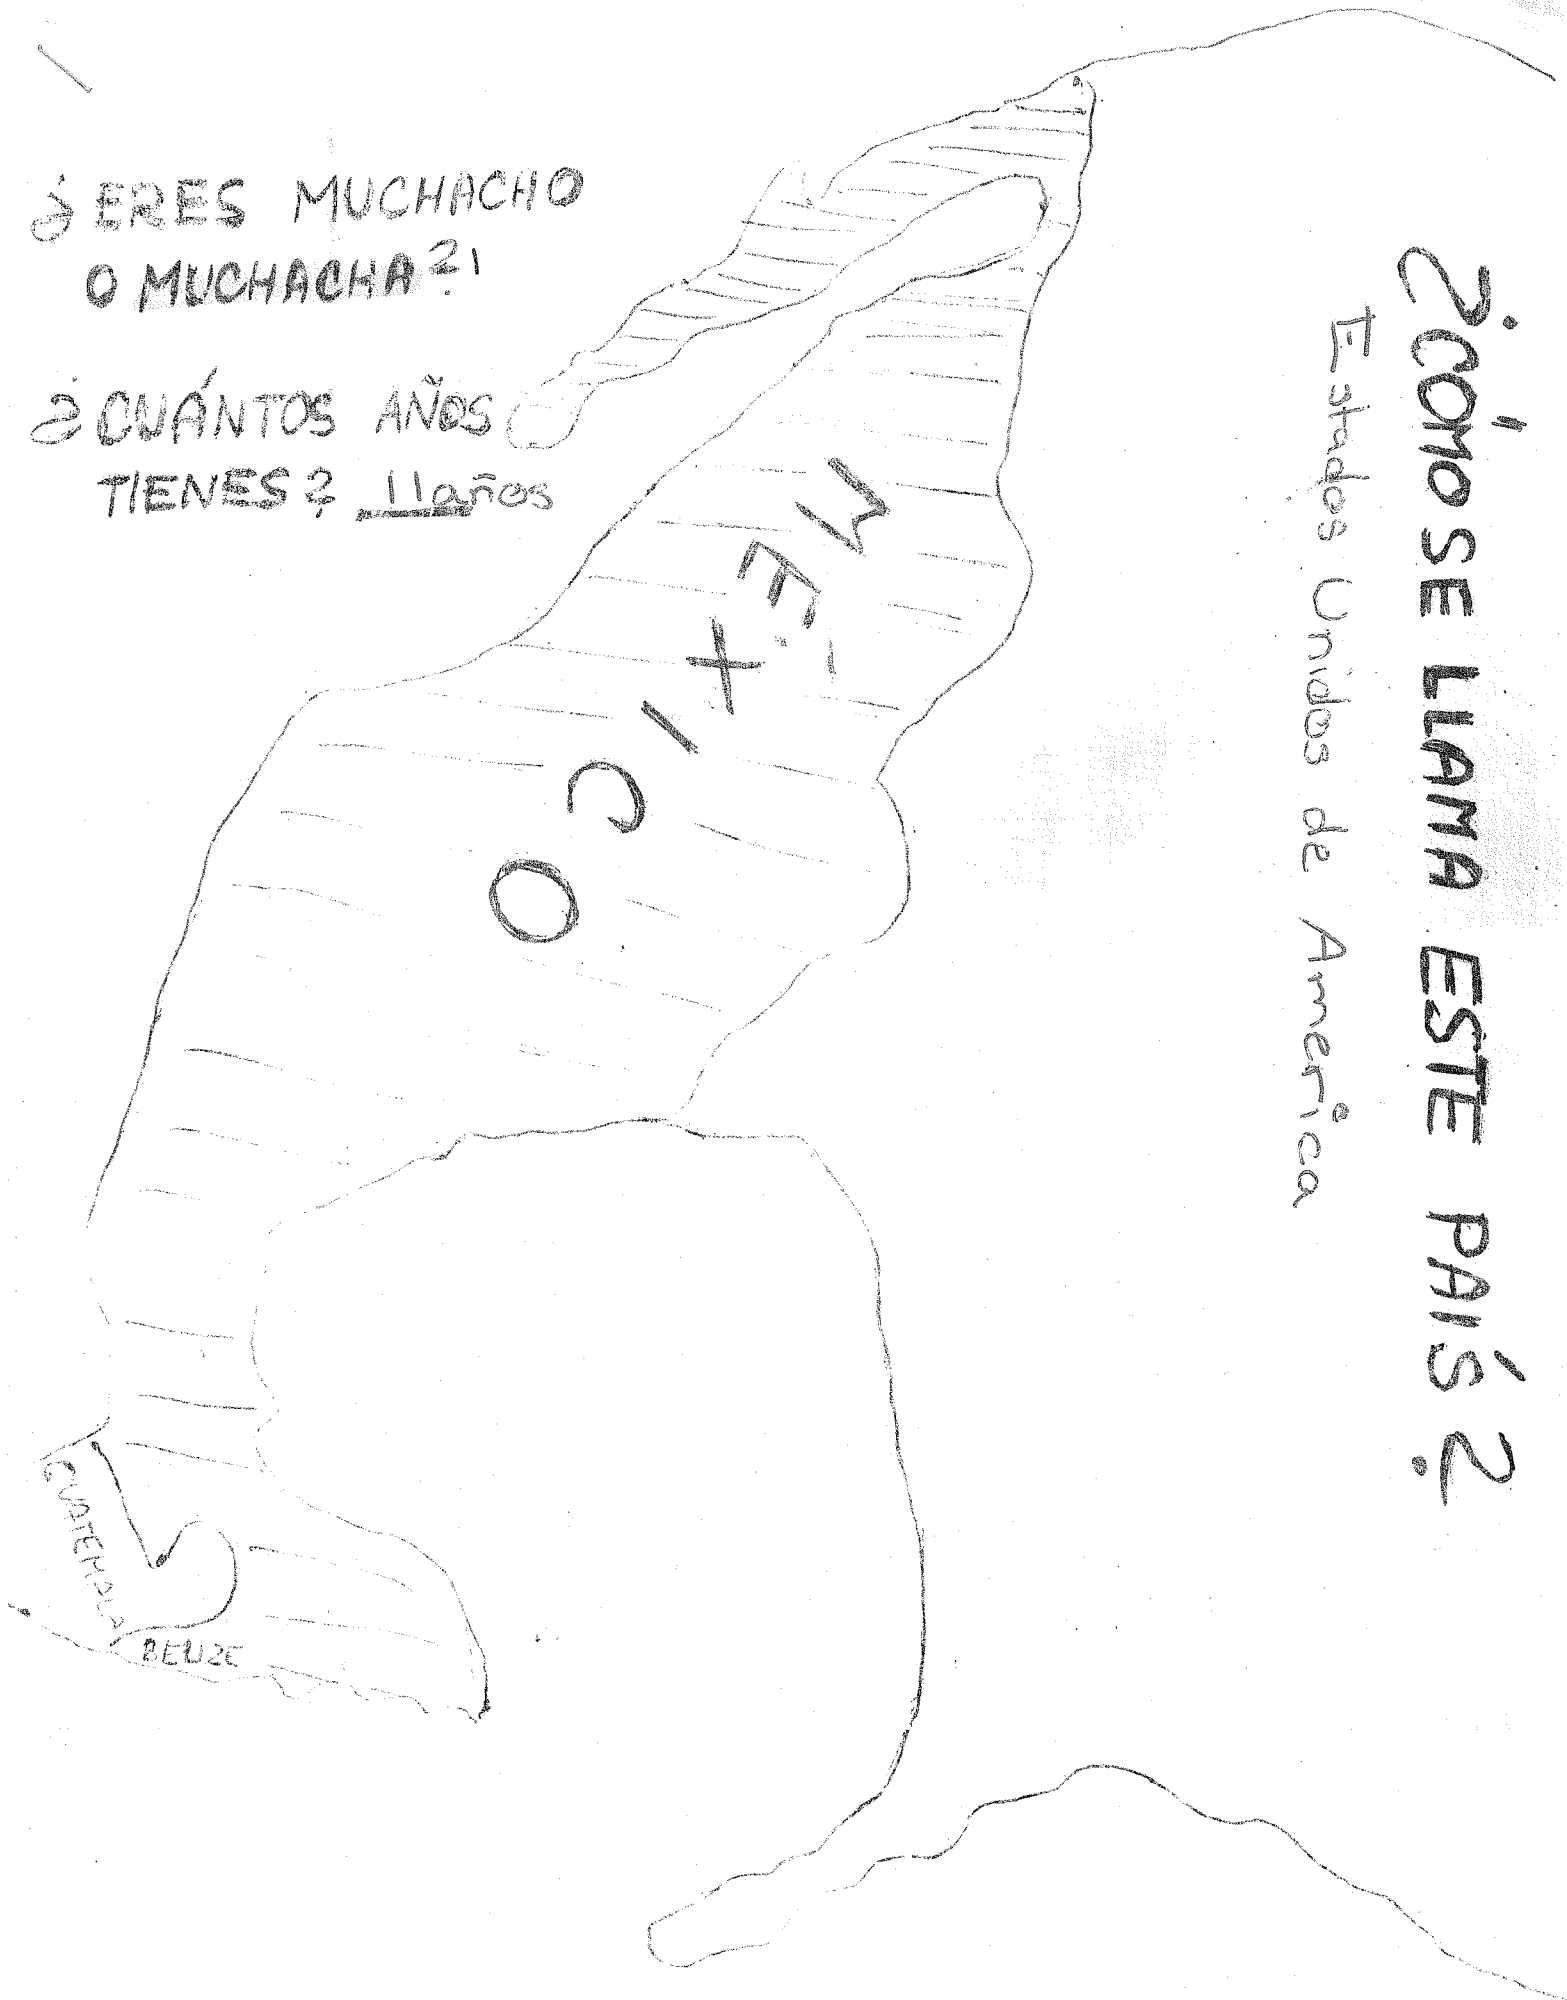 ¿ERES MUCHACHO
O MUCHACHA?
¿CUÁNTOS AÑOS
TIENES? 11 años
¿CÓMO SE LLAMA ESTE PAÍS?
Estados Unidos de América
MÉXICO
GUATEMALA
BELIZE